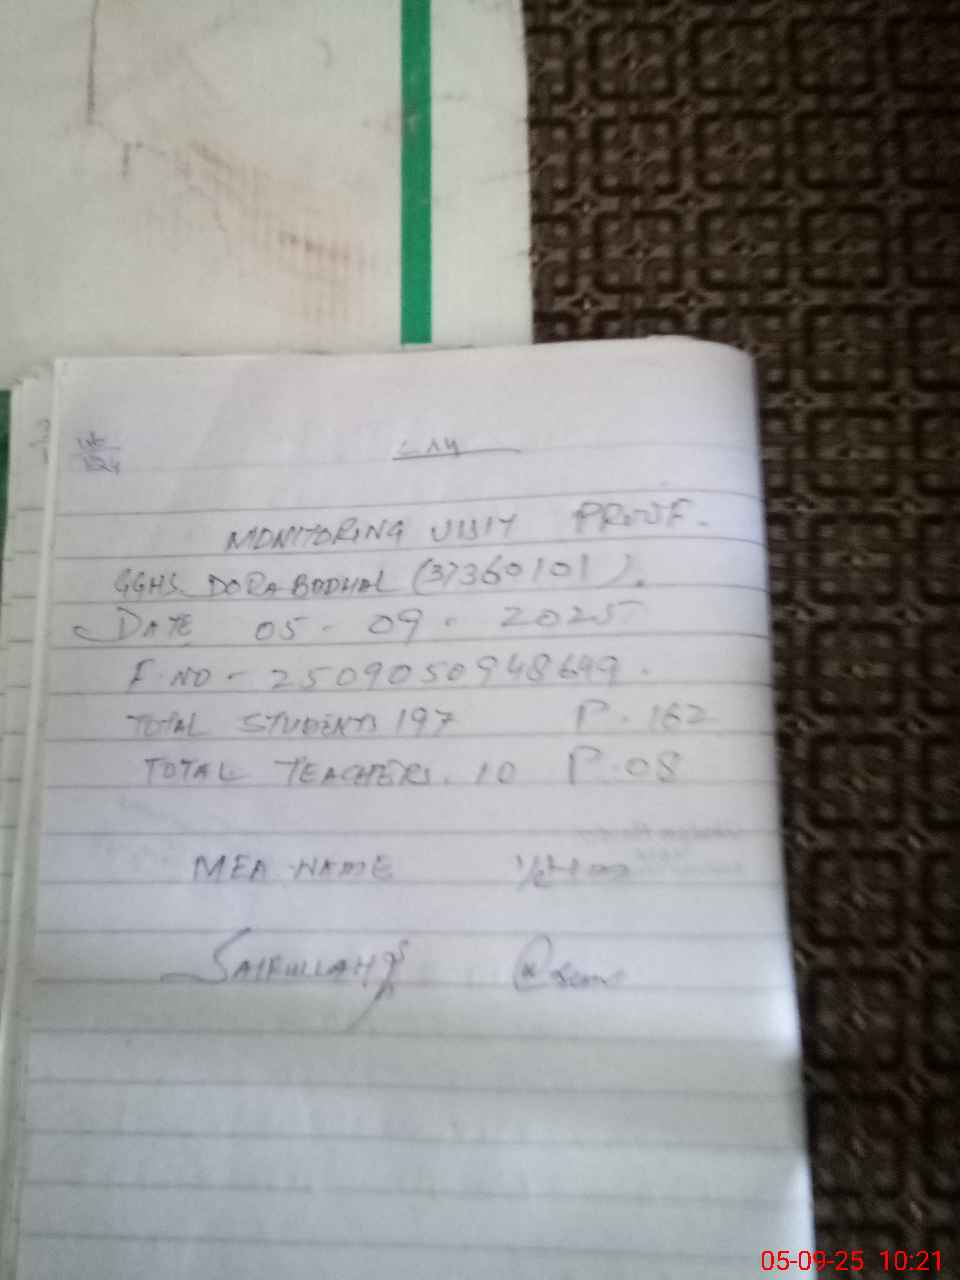 MONITORING VISIT PROOF.
GGHS DORA BADHAL (37360101).
DATE 05-09-2025
F.NO - 2509050948649.
TOTAL STUDENTS 197 P.162
TOTAL TEACHERS. 10 P.08
MEA NAME
SAIFULLAH
05-09-25 10:21